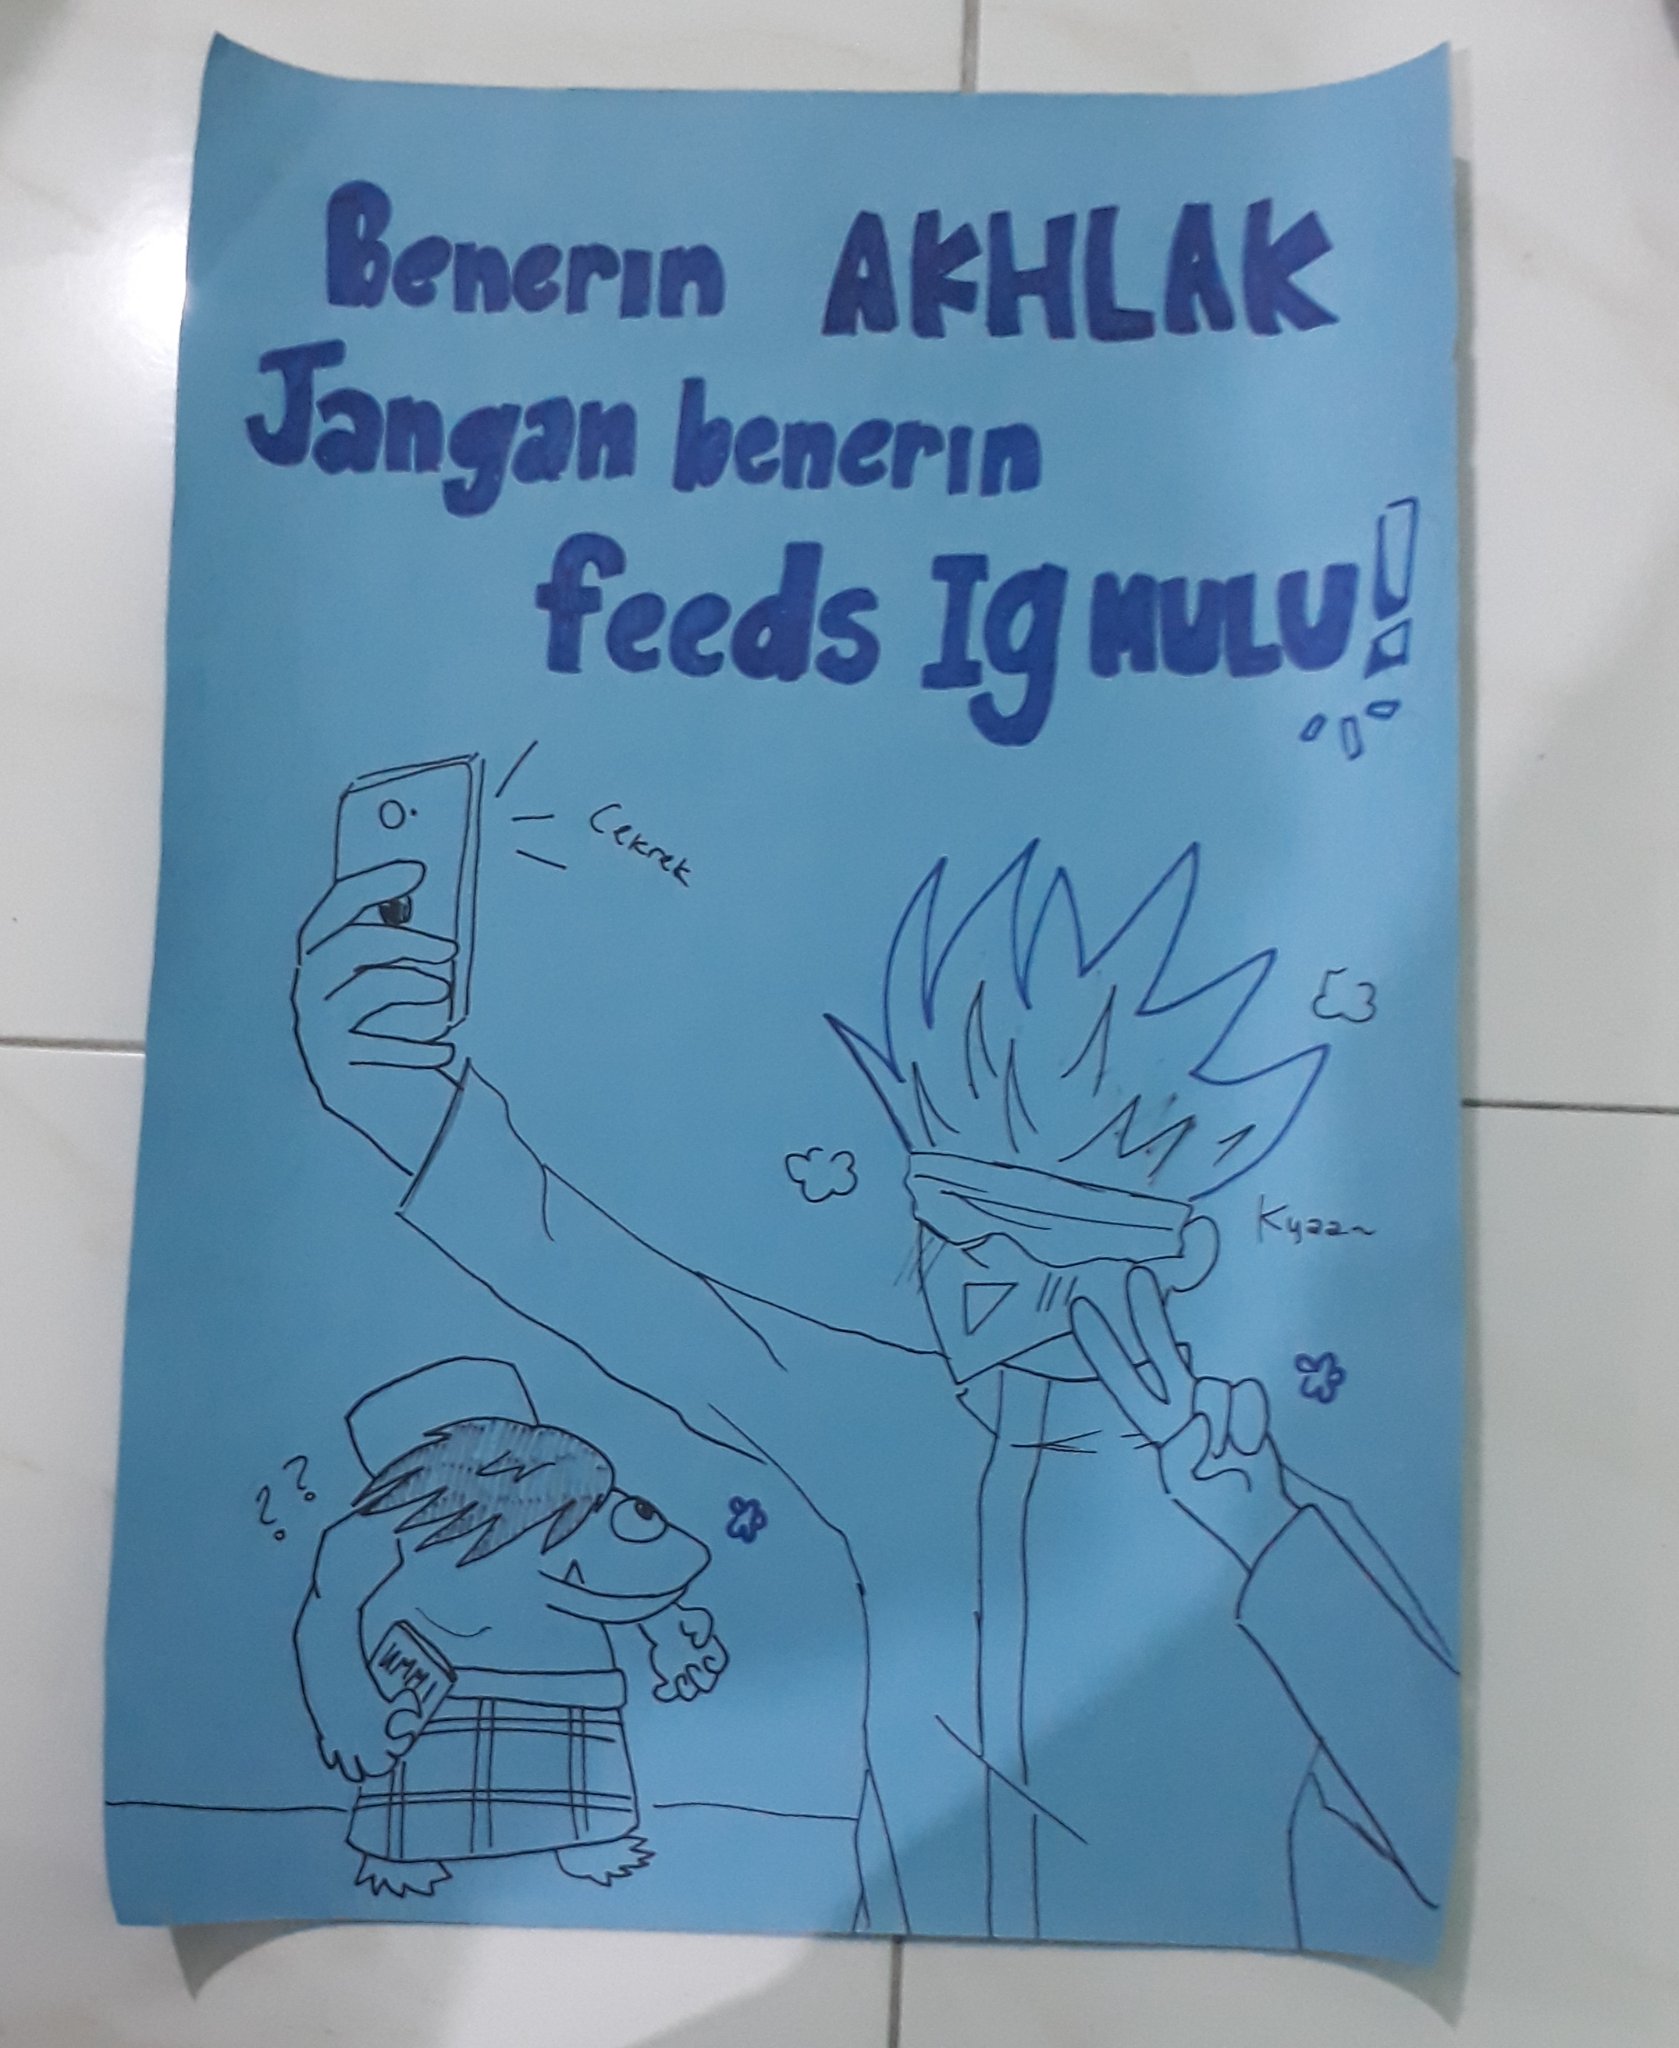 Benerin AKHLAK
Jangan benerin
feeds Ig MULU!
Cekrek
Kyaaa~
??